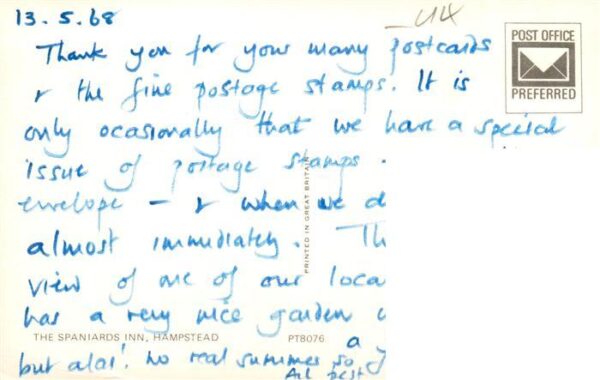 13.5.68
UK
POST OFFICE
PREFERRED
Thank you for your many postcards
& the fine postage stamps. It is
only ocasionally that we have a special
issue of postage stamps.
envelope – & when we d
almost immediately. Th
view of one of our loca
has a very nice garden
PRINTED IN GREAT BRITAIN
THE SPANIARDS INN, HAMPSTEAD PT8076
a
but alas! no real summer so
All best